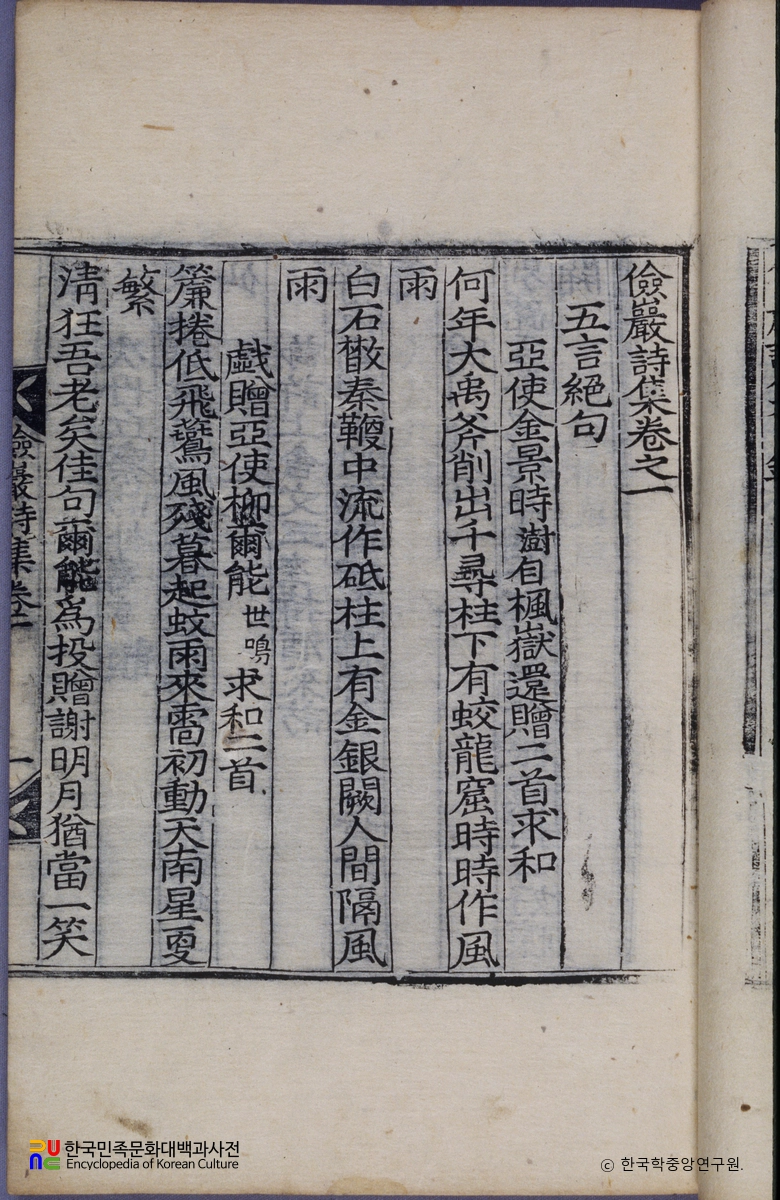 儉巖詩集卷之一
五言絕句
亞使金景時澍自楓嶽還贈二首求和
何年大禹斧削出千尋柱下有蛟龍窟時時作風
雨
白石撒秦鞭中流作砥柱上有金銀闕人間隔風
雨
戱贈亞使柳爾能世鳴求和二首
簾捲低飛鷺風殘暮起蚊雨來雷初動天南星更
繁
淸狂吾老矣佳句爾能爲投贈謝明月猶當一笑
儉巖詩集卷一
一
한국민족문화대백과사전
Encyclopedia of Korean Culture
ⓒ 한국학중앙연구원.